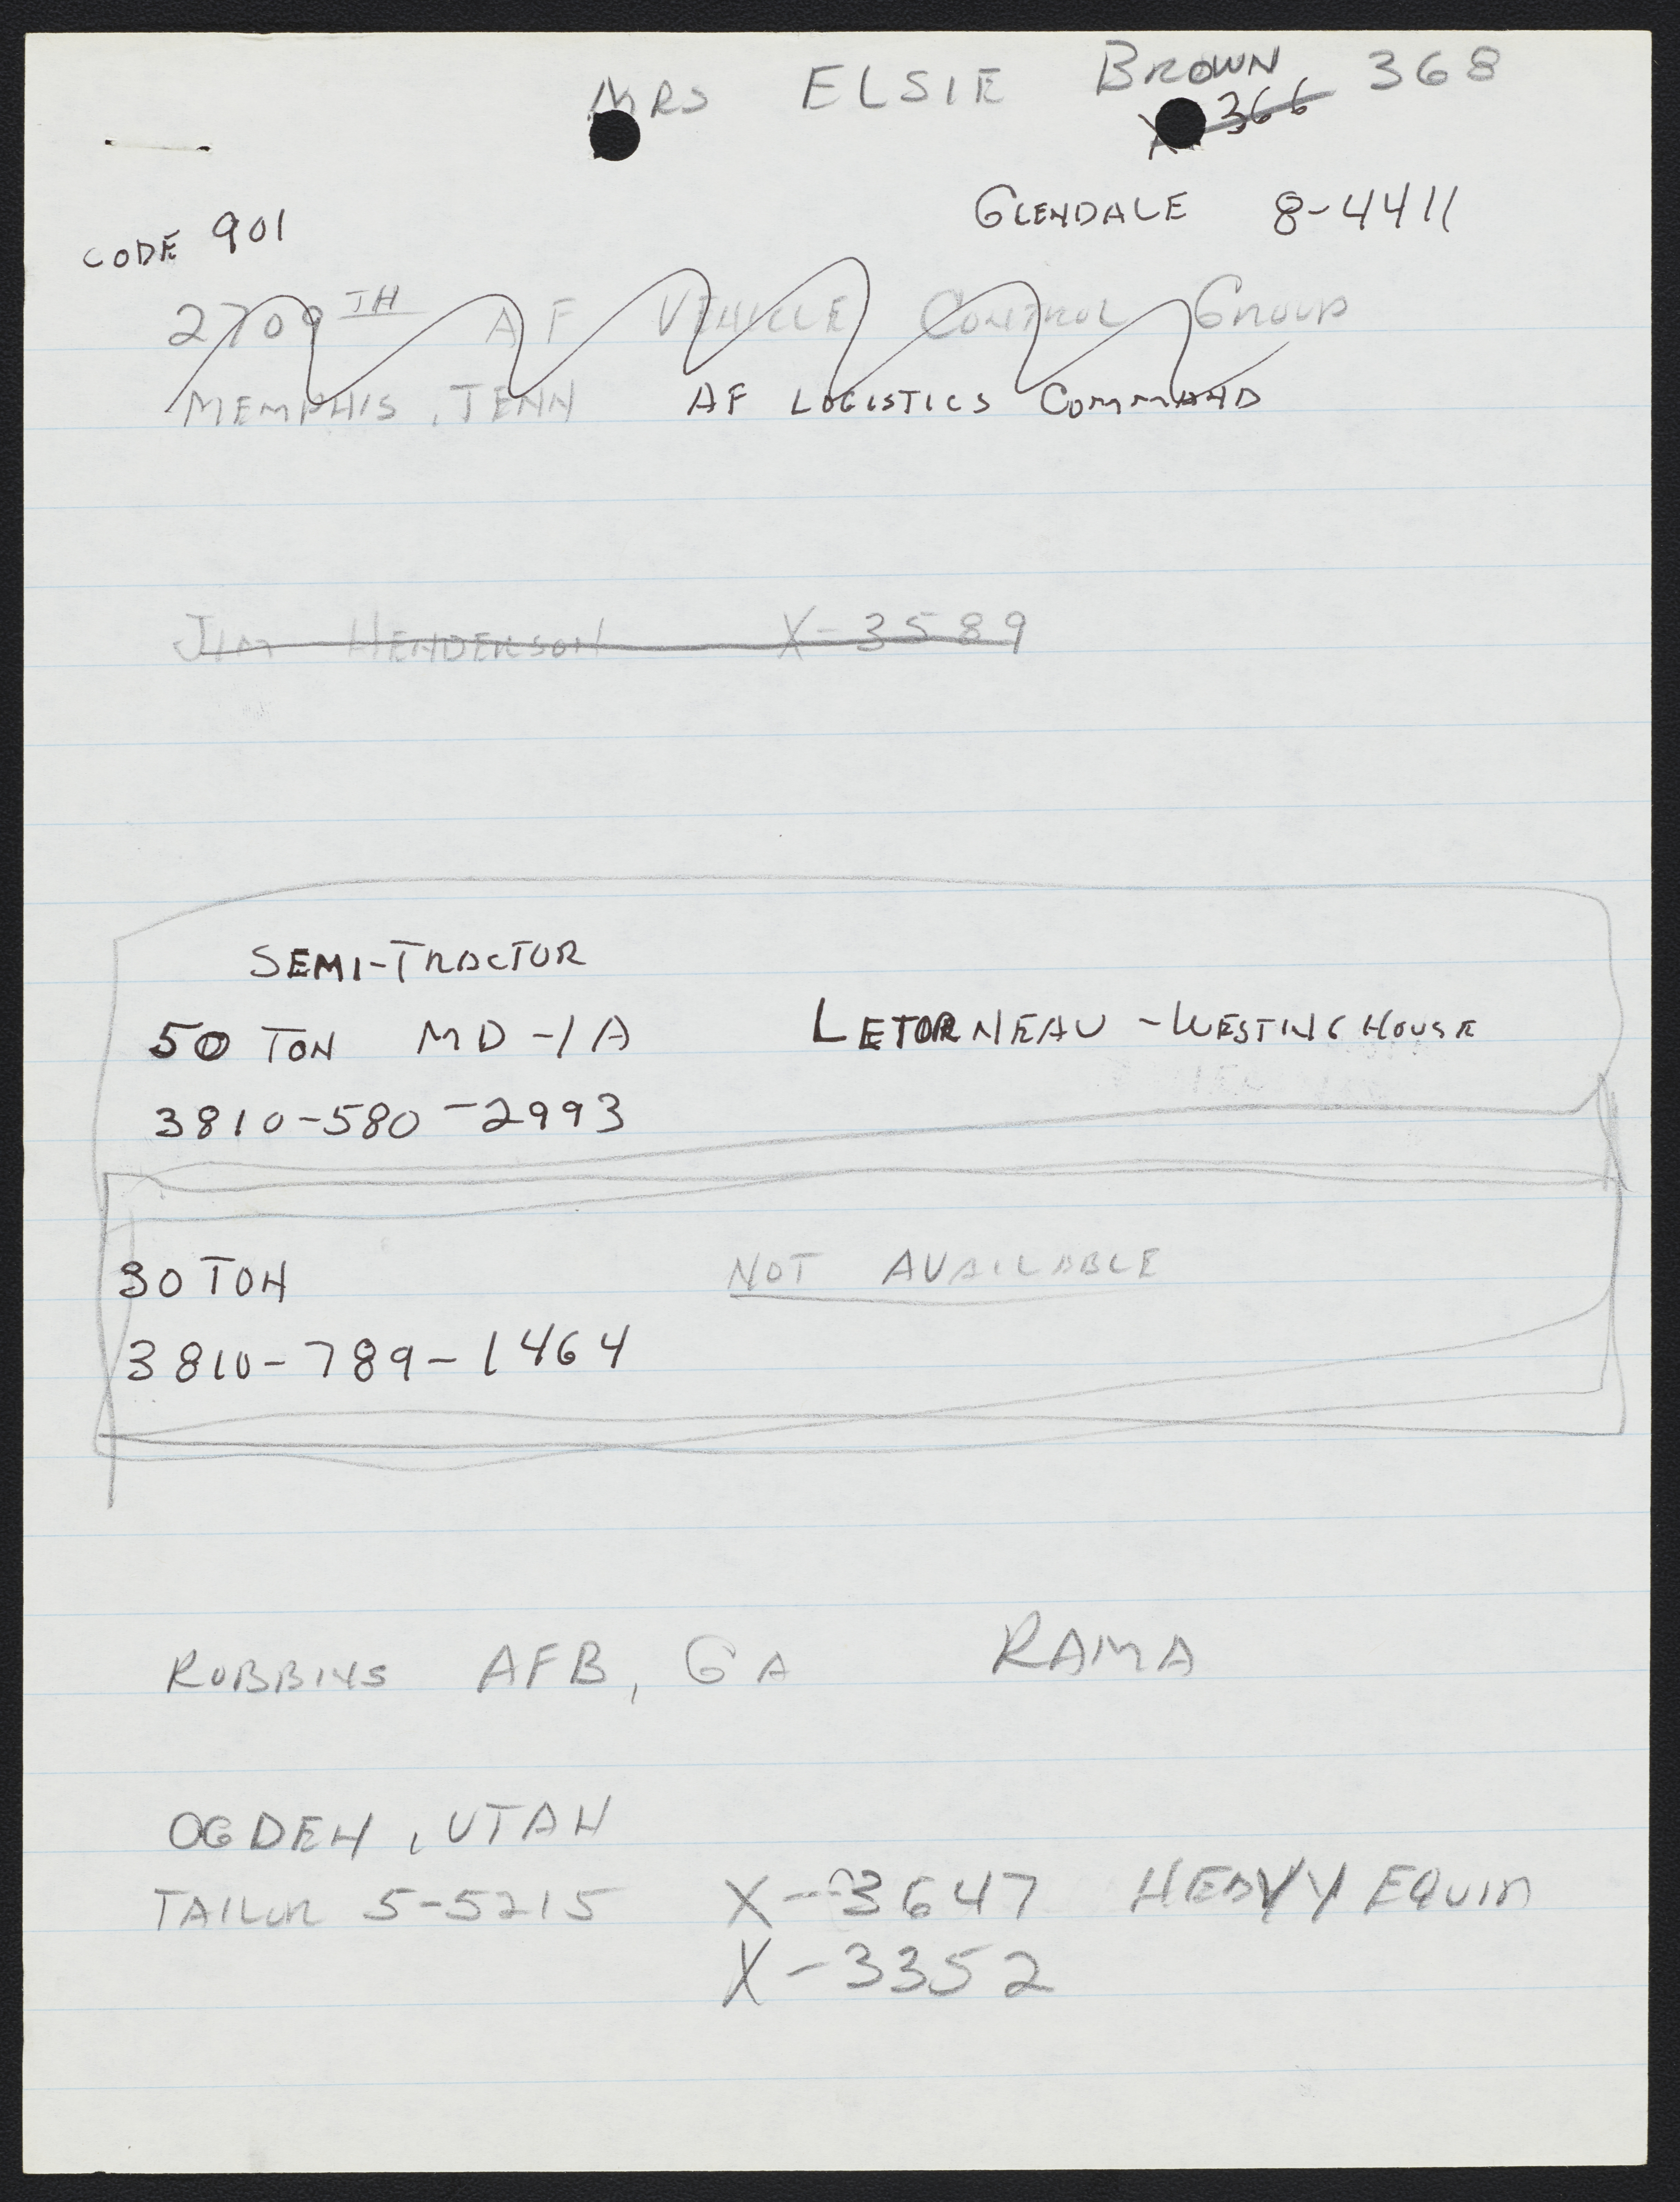 MRS ELSIE BROWN 368
X 366
GLENDALE 8-4411
CODE 901
2709TH AF VEHICLE CONTROL GROUP
MEMPHIS, TENN AF LOGISTICS COMMAND
JIM HENDERSON X-3589
SEMI-TRACTOR
50 TON MD-1A LETORNEAU-WESTINGHOUSE
3810-580-2993
30 TON NOT AVAILABLE
3810-789-1464
ROBBINS AFB, GA RAMA
OGDEN, UTAH
TAILOR 5-5215 X-3647 HEAVY EQUIP
X-3352